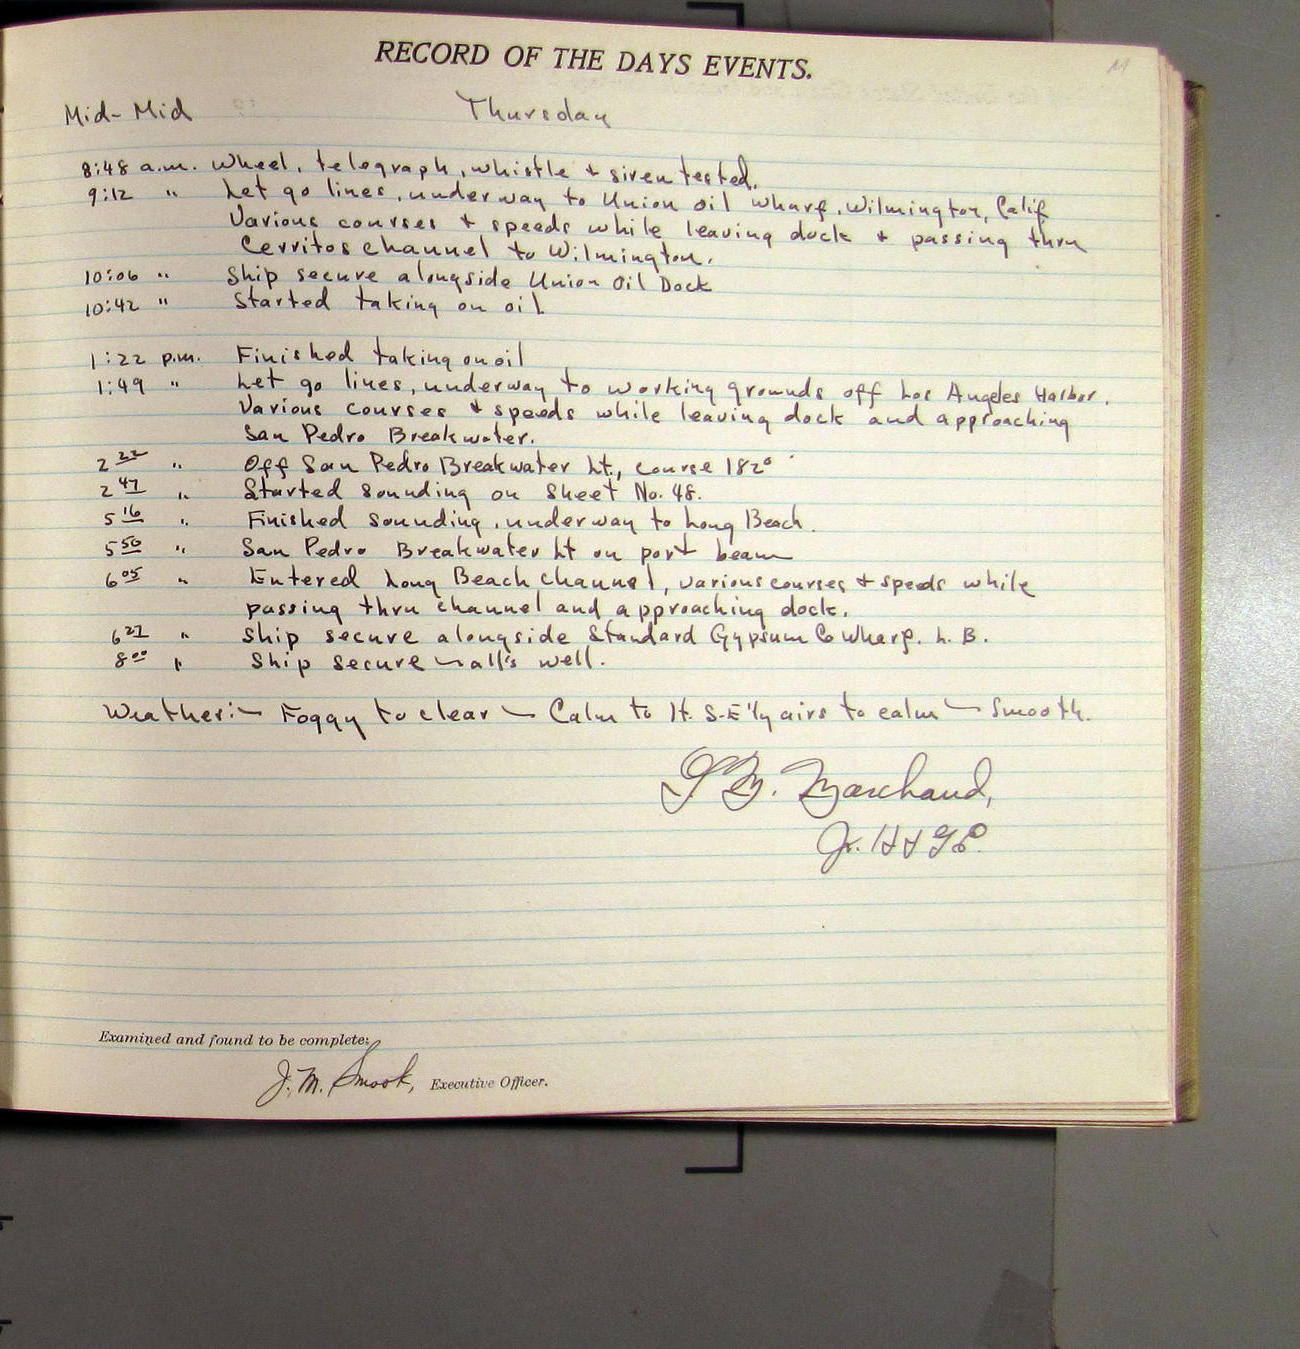 RECORD OF THE DAYS EVENTS.
Mid-Mid Thursday
8:48 a.m. Wheel, telegraph, whistle & siren tested.
9:12 " Let go lines, underway to Union Oil Wharf, Wilmington, Calif
Various courses & speeds while leaving dock & passing thru
Cerritos channel to Wilmington.
10:06 " Ship secure alongside Union Oil Dock
10:42 " Started taking on oil.
1:22 p.m. Finished taking on oil
1:49 " Let go lines, underway to working grounds off Los Angeles Harbor.
Various courses & speeds while leaving dock and approaching
San Pedro Breakwater.
2 22 " Off San Pedro Breakwater Lt., course 182°
2 47 " Started sounding on Sheet No. 48.
5 16 " Finished sounding, underway to Long Beach.
5 50 " San Pedro Breakwater Lt on port beam
6 05 " Entered Long Beach channel, various courses & speeds while
passing thru channel and approaching dock.
6 27 " Ship secure alongside Standard Gypsum Co Wharf. L. B.
8 00 " Ship secure ~ all's well.
Weather:~ Foggy to clear ~ Calm to lt. S-E'ly airs to calm ~ Smooth.
Marchand,
Jr. H & G E.
Examined and found to be complete:
J. M. Smook, Executive Officer.